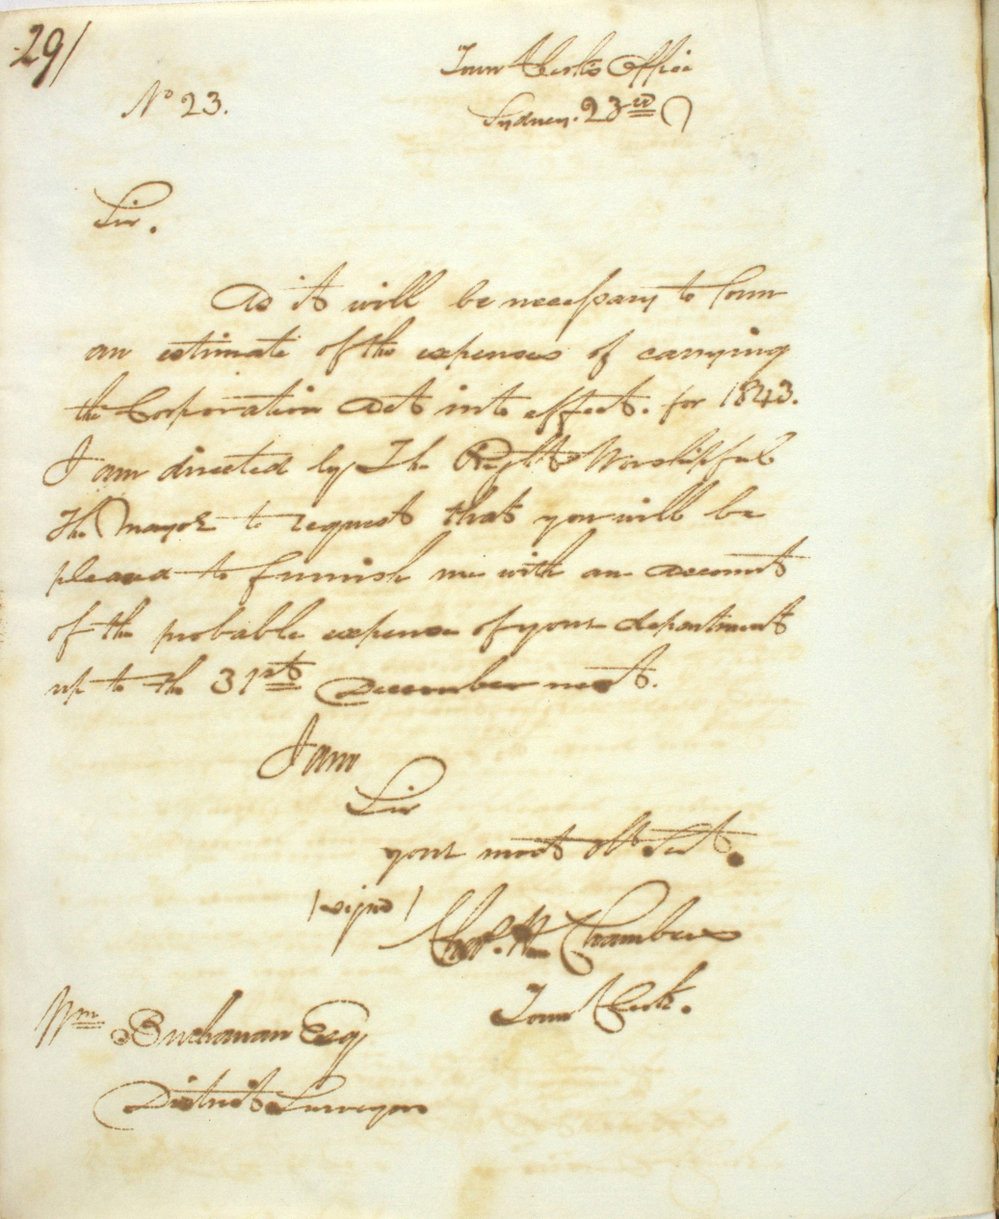 29/
Town Clerk's Office
No 23.
Sydney. 23rd
Sir.
As it will be necessary to form
an estimate of the expenses of carrying
the Corporation Act into effect. for 1843.
I am directed by The Right Worshipful
The Mayor to request that you will be
pleased to furnish me with an account
of the probable expense of your department
up to the 31st December next.
I am
Sir
your most obt Sert.
(signed)
Chas. H. Chambers
Town Clerk.
Wm Buchanan Esq
District Surveyor